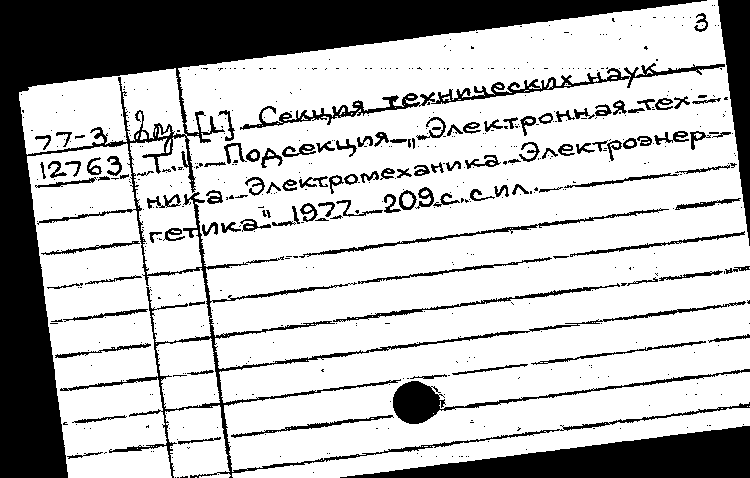 3
77-3 [1]. Секция технических наук.
12763 Т 1. Подсекция „Электронная тех-
ника. Электромеханика. Электроэнер-
гетика". 1977. 209 с. с ил.